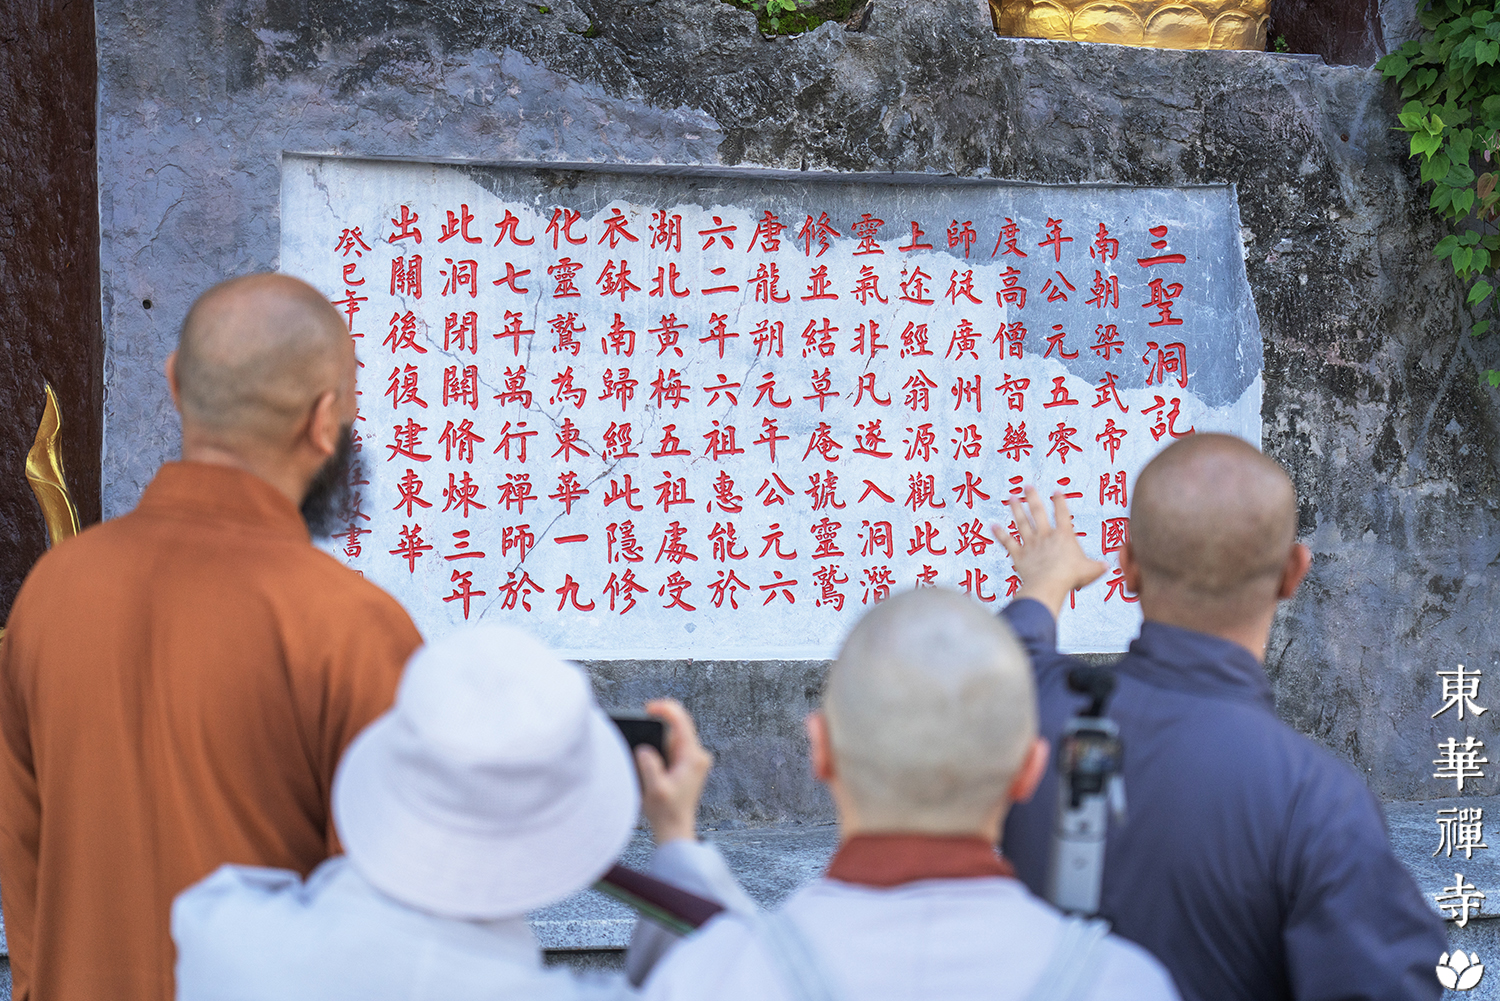 三聖洞記
南朝梁武帝開國元
年公元五零二
度高僧智藥三
師從廣州沿水路北
上途經翁源觀此處
靈氣非凡遂入洞潛
修並結草庵號靈鷲
唐龍朔元年公元六
六二年六祖惠能於
湖北黃梅五祖處受
衣鉢南歸經此隱修
化靈鷲為東華一九
九七年萬行禪師於
此洞閉關脩煉三年
出關後復建東華
癸巳年書
東華禪寺